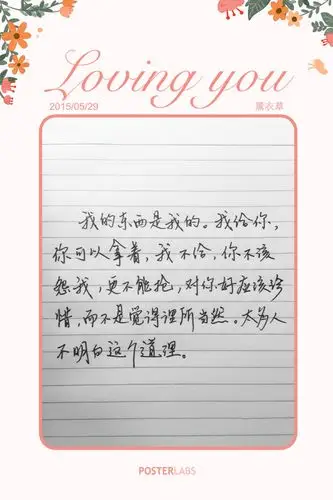 Loving you
2015/05/29 薰衣草
我的东西是我的。我给你,
你可以拿着,我不给,你不该
怨我,更不能抢,对你好应该珍
惜,而不是觉得理所当然。太多人
不明白这个道理。
POSTERLABS